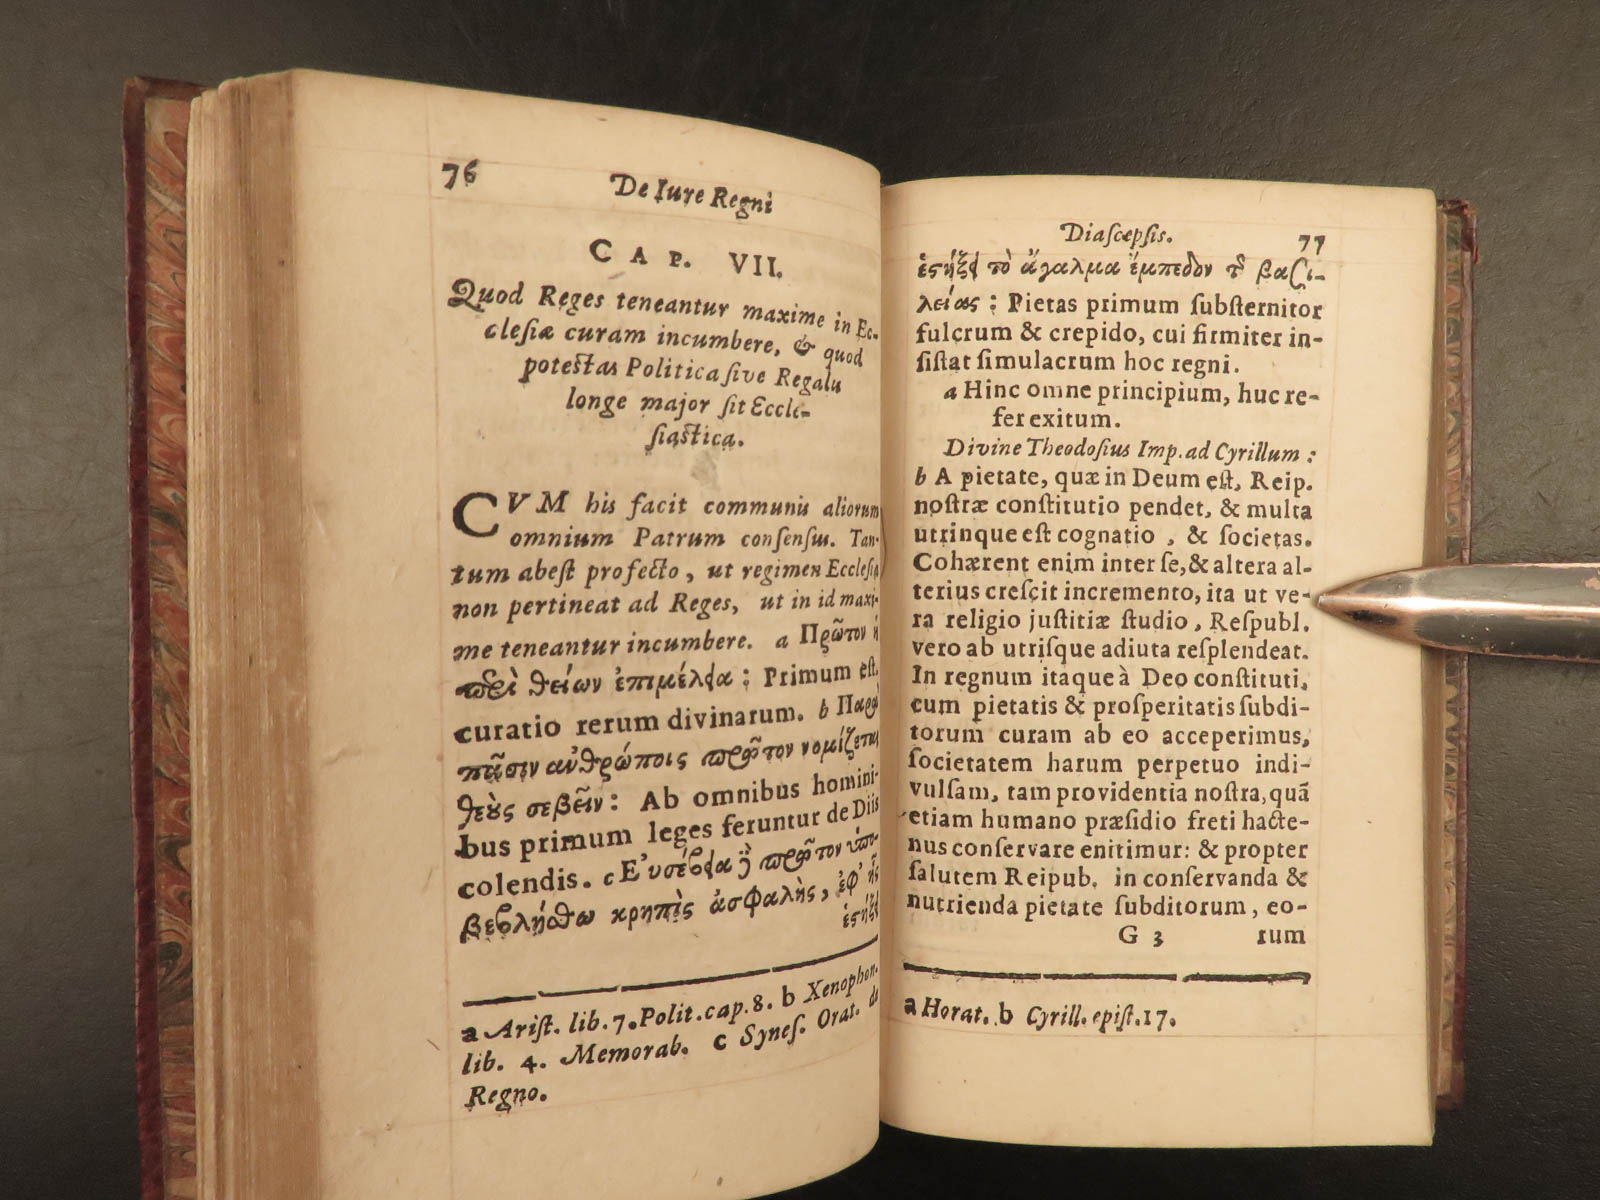 76
De Iure Regni
CAP. VII.
Quod Reges teneantur maxime in Ec-
clesiæ curam incumbere, & quod
potestas Politica sive Regalis
longe major sit Eccle-
siastica.
CVM his facit communis aliorum
omnium Patrum consensus. Tan-
tum abest profecto, ut regimen Ecclesiæ
non pertineat ad Reges, ut in id maxi-
me teneantur incumbere. a Πρῶτον ἡ
περὶ θείων ἐπιμέλεια : Primum est
curatio rerum divinarum. b Παρὰ
πᾶσιν ἀνθρώποις πρῶτον νομίζεται
θεοὺς σεβεῖν : Ab omnibus homini-
bus primum leges feruntur de Diis
colendis. c Εὐσέβεια ἢ πρῶτον ὑπο-
βεβλήσθω κρηπὶς ἀσφαλὴς, ἐφ' ἧς
ἑστήξει
a Arist. lib. 7. Polit. cap. 8. b Xenophon.
lib. 4. Memorab. c Synes. Orat. de
Regno.
Diascepsis. 77
ἑστήξει τὸ ἄγαλμα ἔμπεδον τῆς βασι-
λείας : Pietas primum substernitor
fulcrum & crepido, cui firmiter in-
sistat simulacrum hoc regni.
a Hinc omne principium, huc re-
fer exitum.
Divine Theodosius Imp. ad Cyrillum :
b A pietate, quæ in Deum est, Reip.
nostræ constitutio pendet, & multa
utrinque est cognatio , & societas.
Cohærent enim inter se, & altera al-
terius crescit incremento, ita ut ve-
ra religio justitiæ studio , Respubl.
vero ab utrisque adiuta resplendeat.
In regnum itaque à Deo constituti,
cum pietatis & prosperitatis subdi-
torum curam ab eo acceperimus,
societatem harum perpetuo indi-
vulsam, tam providentia nostra, quã
etiam humano præsidio freti hacte-
nus conservare enitimur: & propter
salutem Reipub. in conservanda &
nutrienda pietate subditorum , eo-
G 3 rum
a Horat. b Cyrill. epist. 17.